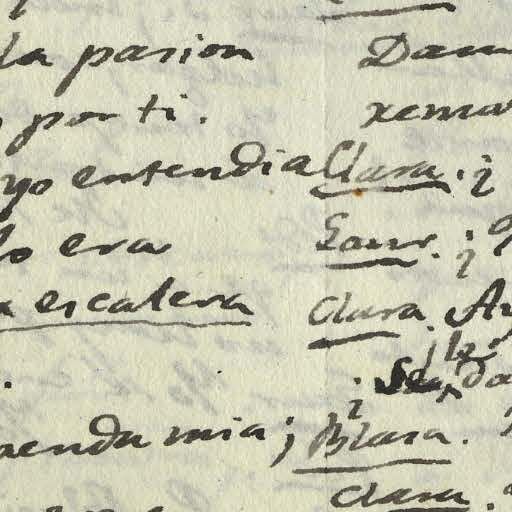 la pasion
por ti.
yo entendia
lo era
escalera
.
mia;
Dam
Clara. ¿
Laur. ¿
Clara. Ay
¿
Blasa.
Clara.